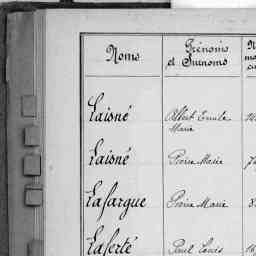 Noms
Prénoms
et Surnoms
Laisné
Albert Emile
Marie
Laisné
Pierre Marie
Lafargue
Pierre Marie
Laferté
Paul Louis